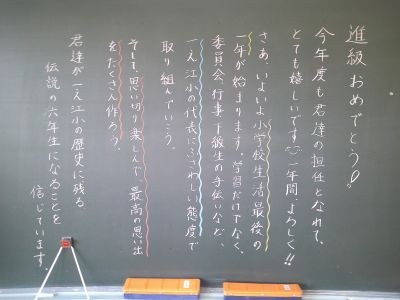 進級おめでとう!
今年度も君達の担任となれて、
とても嬉しいです 一年間、よろしく!!
さあ、いよいよ小学校生活最後の
一年が始まります。学習だけでなく、
委員会、行事、下級生の手伝いなど、
一之江小の代表にふさわしい態度で
取り組んでいこう。
そして、思い切り楽しんで、最高の思い出
をたくさん作ろう。
君達が一之江小の歴史に残る
伝説の六年生になることを
信じています。